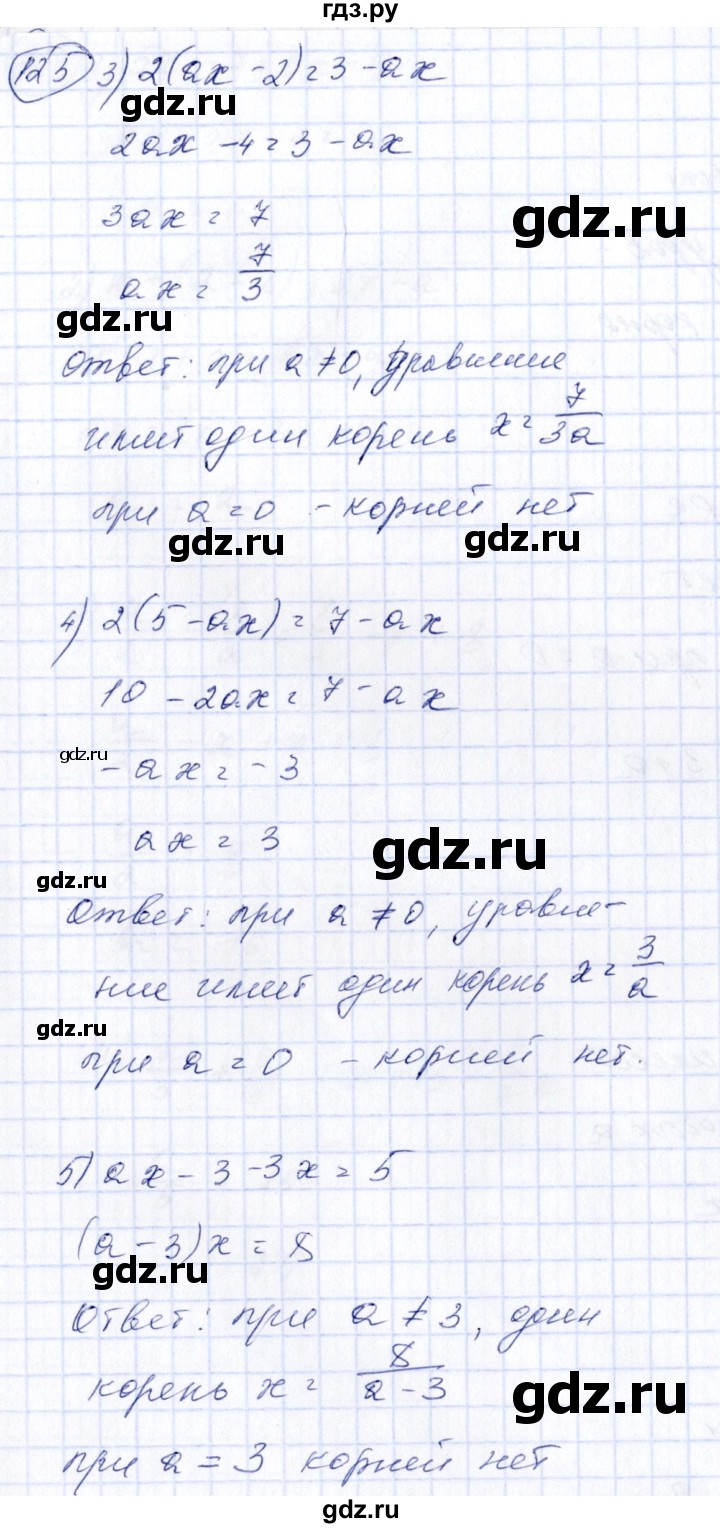 гдз.ру
125 3) 2(ax - 2) = 3 - ax
gdz.ru
2ax - 4 = 3 - ax
gdz.ru
3ax = 7
ax = 7/3
gdz.ru
Ответ: при a ≠ 0, уравнение
имеет один корень x = 7/3a
при a = 0 - корней нет
gdz.ru gdz.ru
4) 2(5 - ax) = 7 - ax
10 - 2ax = 7 - ax
gdz.ru
- ax = - 3
ax = 3
gdz.ru
gdz.ru
Ответ: при a ≠ 0, уравне-
ние имеет один корень x = 3/a
gdz.ru
при a = 0 - корней нет.
5) ax - 3 - 3x = 5
(a - 3)x = 8
gdz.ru
Ответ: при a ≠ 3, один
корень x = 8/a - 3
gdz.ru
при a = 3 корней нет
gdz.ru